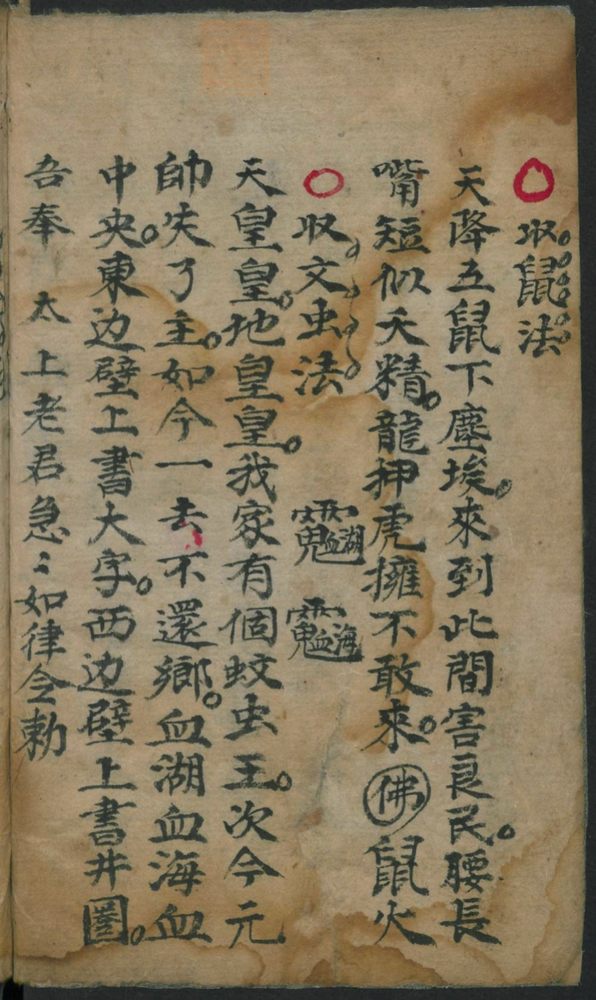 收鼠法
天降五鼠下塵埃。來到此間害良民。腰長
嘴短似天精。龍押虎擁不敢來。佛鼠火
收文虫法
天皇皇。地皇皇。我家有個蚊虫王。次今元
帥失了主。如今一去不還鄉。血湖血海血
中央。東边壁上書大字。西边壁上書井圈。
吾奉 太上老君急〻如律令勅